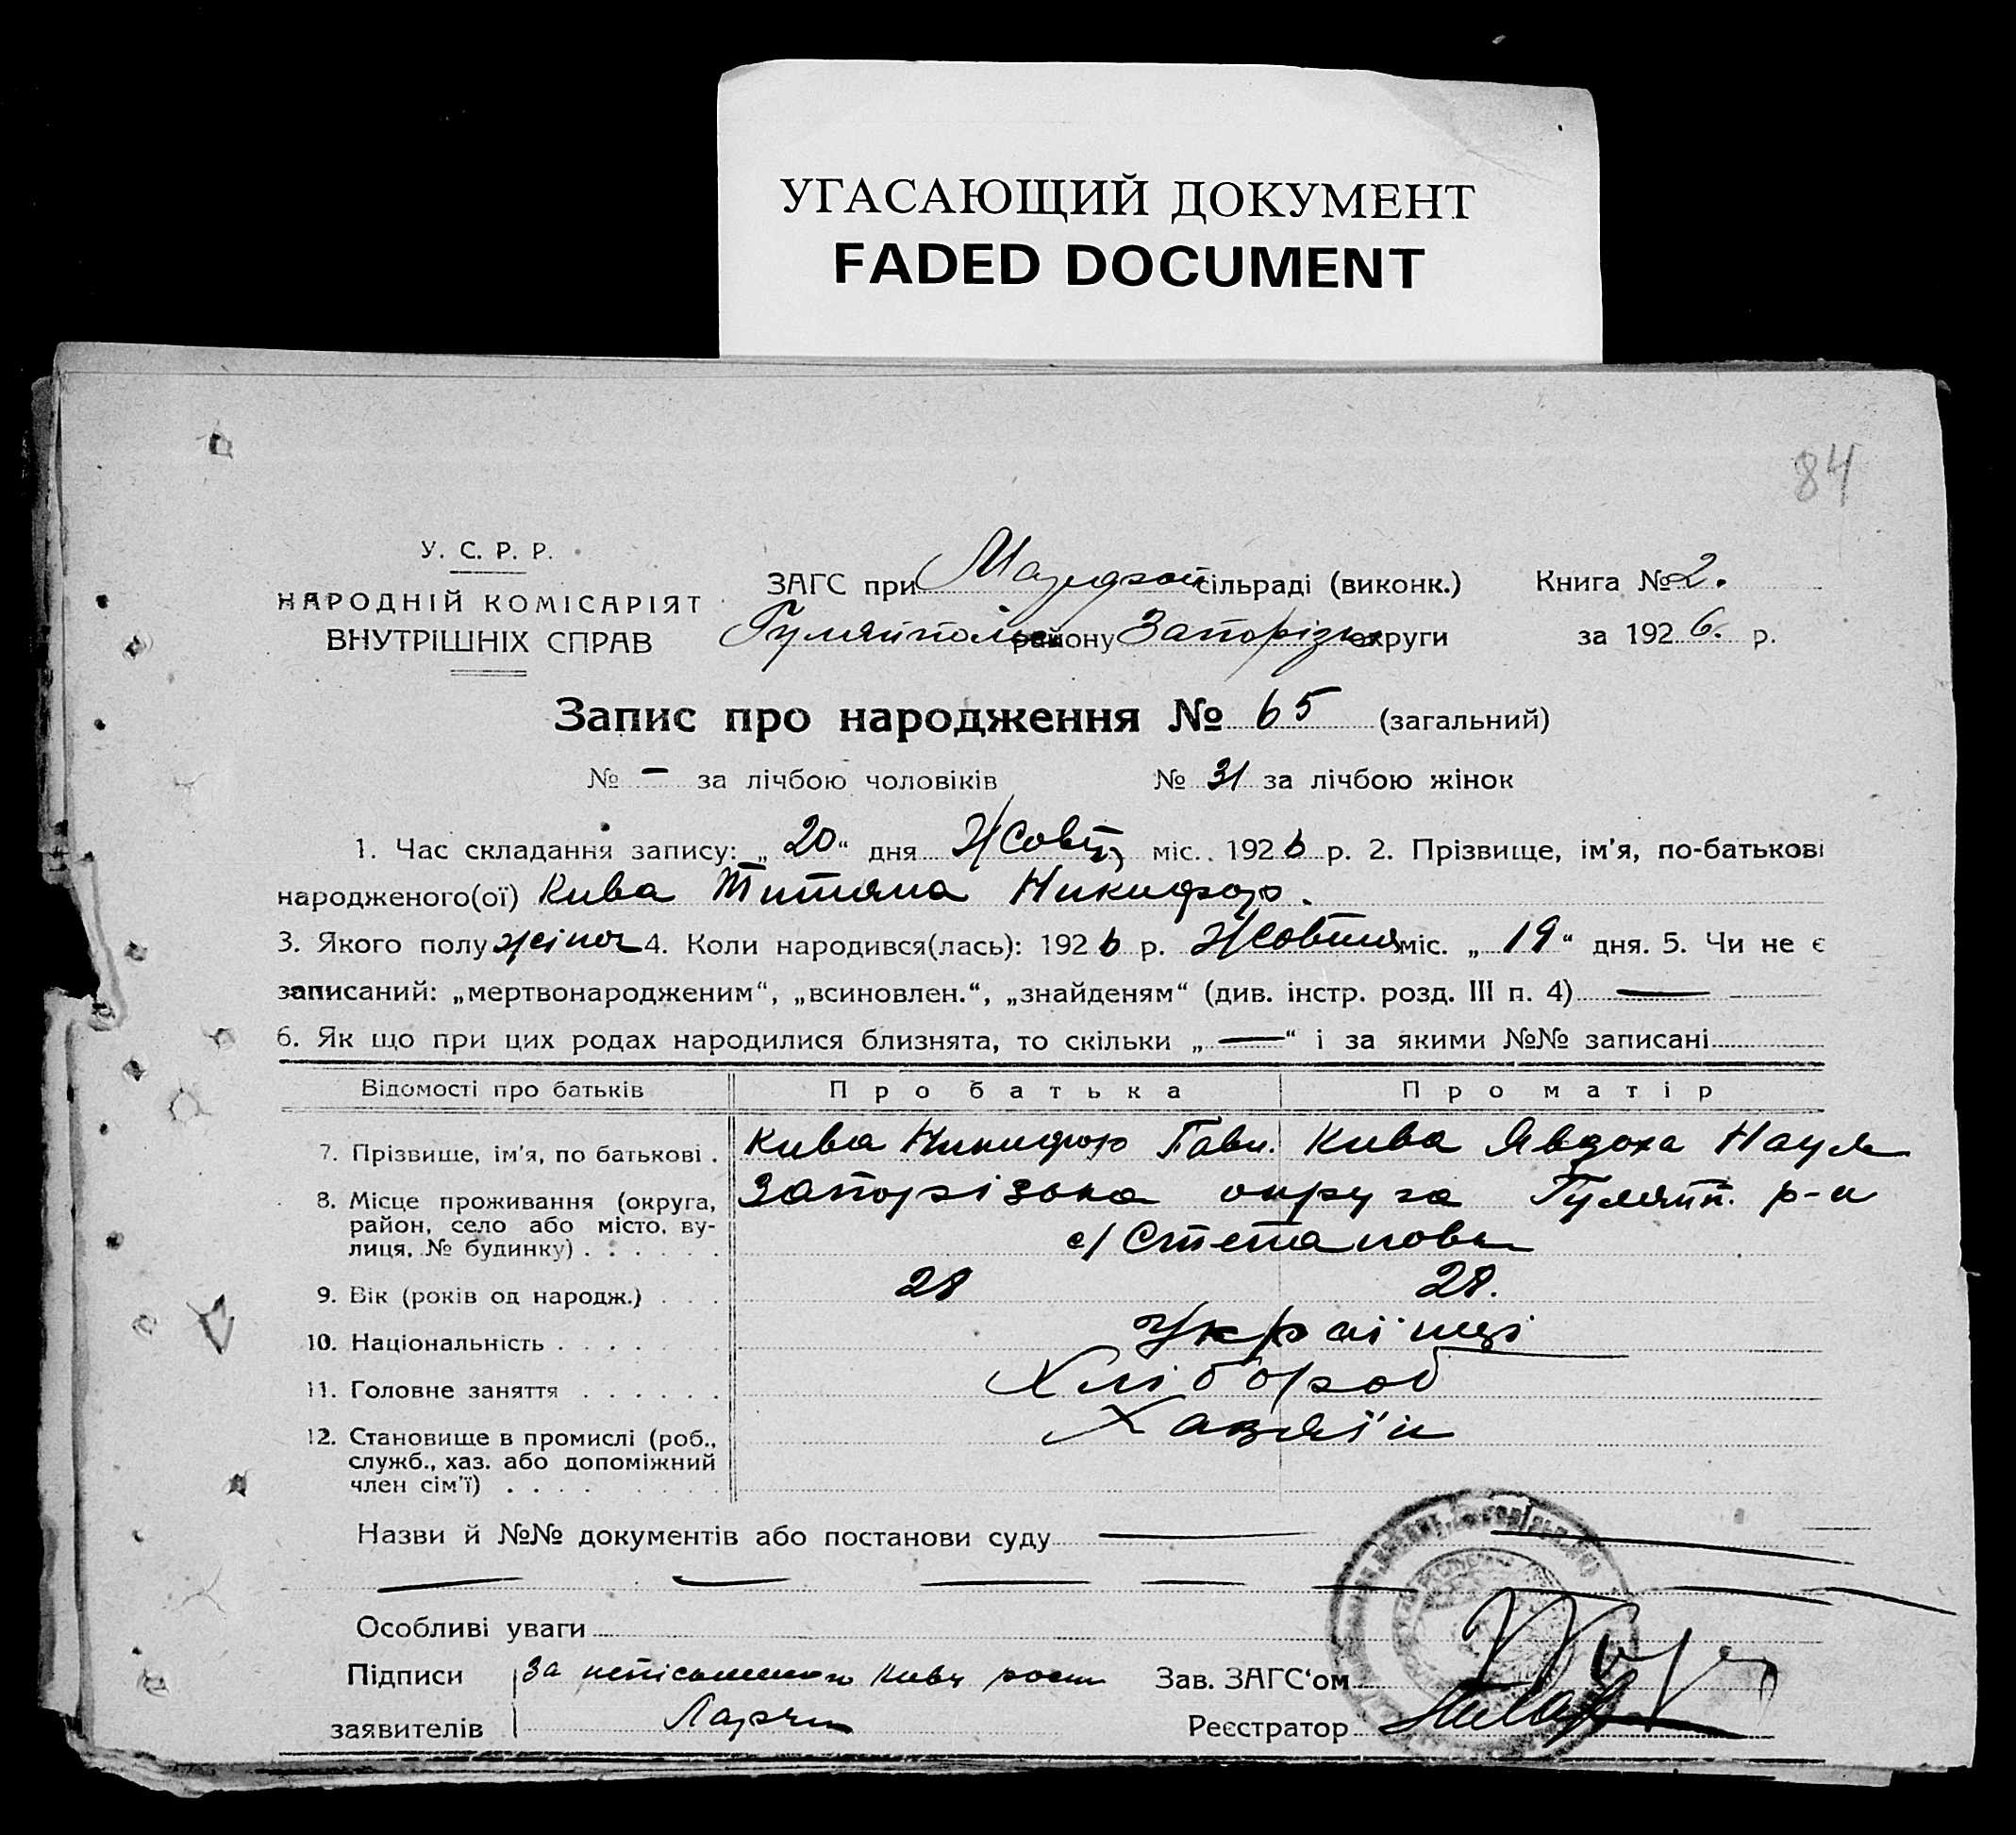 УГАСАЮЩИЙ ДОКУМЕНТ
FADED DOCUMENT
84
У. С. Р. Р.
НАРОДНІЙ КОМІСАРІЯТ
ВНУТРІШНІХ СПРАВ
ЗАГС при сільраді (виконк.) Книга № 2.
Гуляйпольс району Запорізьк округи за 1926. р.
Запис про народження № 65 (загальний)
№ – за лічбою чоловіків № 31 за лічбою жінок
1. Час складання запису: „20“ дня Жовт, міс. 1926 р. 2. Прізвище, ім'я, по-батькові
народженого(ої) Кива Титяна Никифор.
3. Якого полу жіноч 4. Коли народився(лась): 1926 р. Жовтня міс. „19“ дня. 5. Чи не є
записаний: „мертвонародженим“, „всиновлен.“, „знайденям“ (див. інстр. розд. III п. 4) —
6. Як що при цих родах народилися близнята, то скільки „—“ і за якими №№ записані
Відомості про батьків Про батька Про матір
7. Прізвище, ім'я, по батькові . Кива Никифор Павл. Кива Явдоха Наум
8. Місце проживання (округа, Запорізька округа Гуляйп. р-н
район, село або місто, ву-
лиця, № будинку) . . . . . . с/ Степановк
9. Вік (років од народж.) . . . 28 28.
10. Національність . . . . . . . Українці
11. Головне заняття . . . . . . Хлібороб
12. Становище в промислі (роб., Хазяїн
служб., хаз. або допоміжний
член сім'ї) . . . .
Назви й №№ документів або постанови суду —
Особливі уваги
Підписи За неписьменого Киву росп Зав. ЗАГС‘ом
заявителів Реєстратор